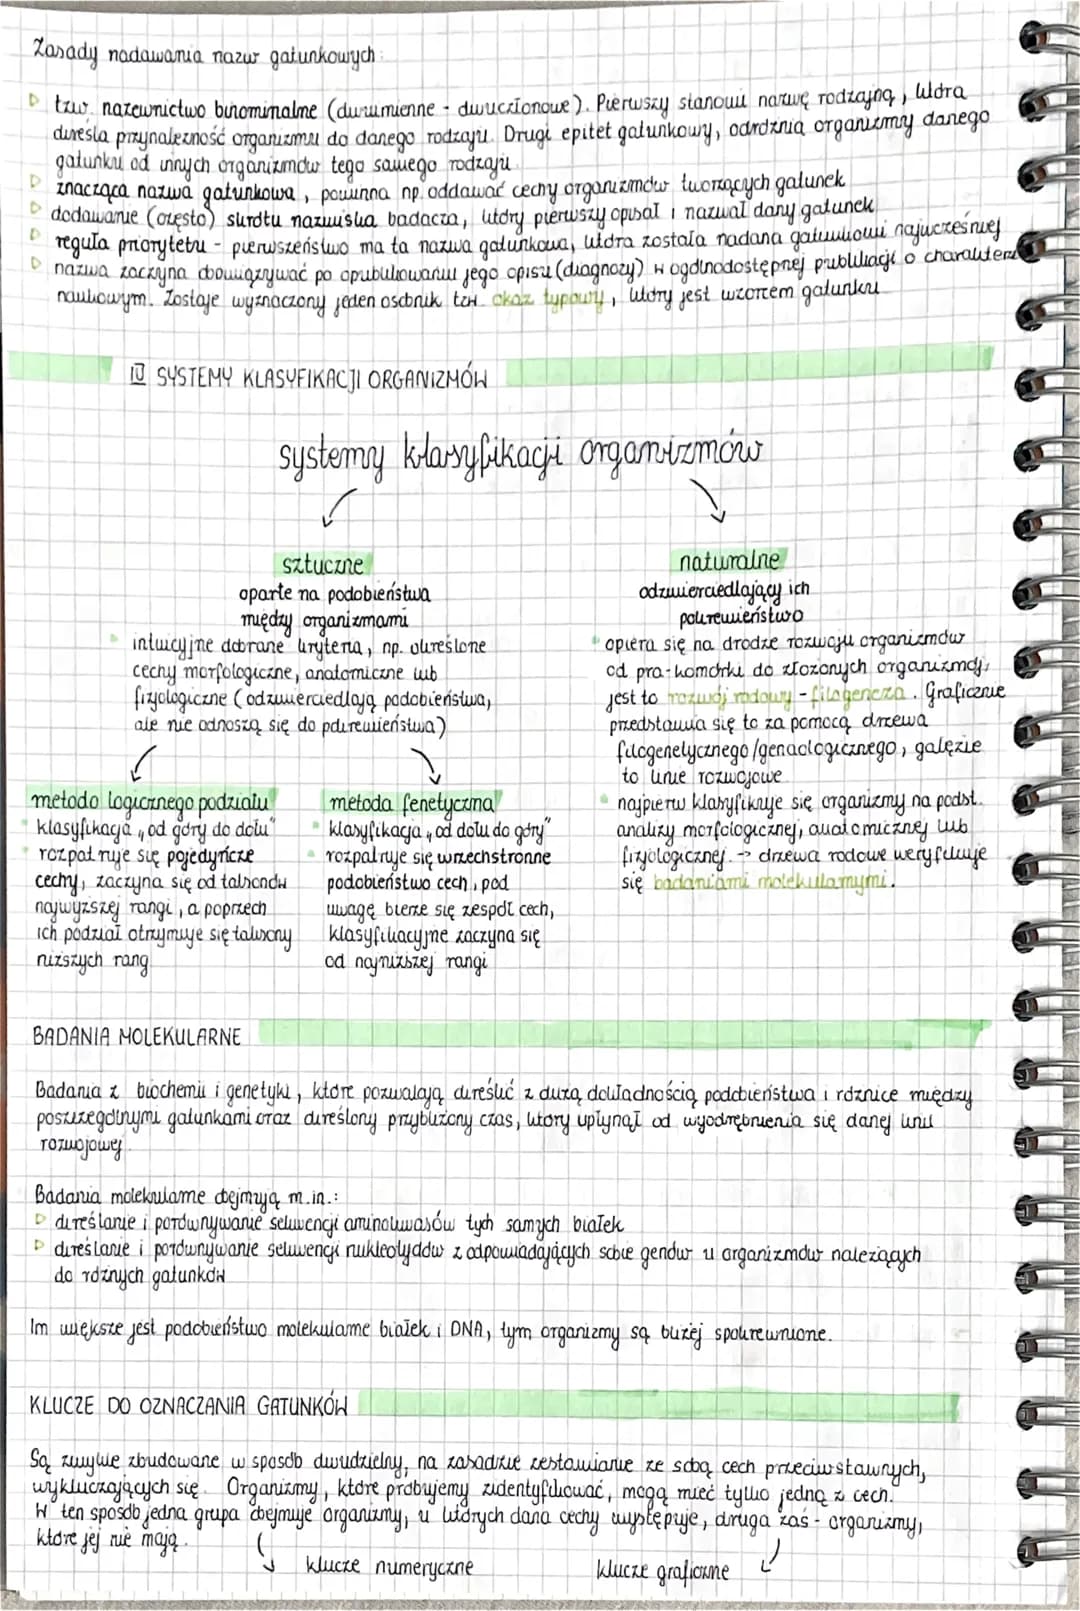 Zasady nadawania nazw gatunkowych:
tzw. nazewnictwo binominalne (dwumienne - dwuczłonowe). Pierwszy stanowi nazwę rodzajną, która
określa przynależność organizmu do danego rodzaju. Drugi epitet gatunkowy, odróżnia organizmy danego
gatunku od innych organizmów tego samego rodzaju
znacząca nazwa gatunkowa, powinna np. oddawać cechy organizmów tworzących gatunek
dodawanie (często) skrótu nazwiska badacza, który pierwszy opisał i nazwał dany gatunek
reguła priorytetu - pierwszeństwo ma ta nazwa gatunkowa, która została nadana gatunkowi najwcześniej
nazwa zaczyna obowiązywać po opublikowaniu jego opisu (diagnozy) w ogólnodostępnej publikacji o charakterze
naukowym. Zostaje wyznaczony jeden osobnik tzw. okaz typowy, który jest wzorcem gatunku
IV SYSTEMY KLASYFIKACJI ORGANIZMÓW
systemy klasyfikacji organizmów
sztuczne
oparte na podobieństwa
między organizmami
intuicyjne dobrane kryteria, np. określone
cechy morfologiczne, anatomiczne lub
fizjologiczne (odzwierciedlają podobieństwa,
ale nie odnoszą się do pokrewieństwa)
metodo logicznego podziału
klasyfikacja „od góry do dołu"
rozpatruje się pojedyńcze
cechy, zaczyna się od taksonów
najwyższej rangi, a poprzech
ich podział otrzymuje się taksony
niższych rang
metoda fenetyczna
klasyfikacja „od dołu do góry"
rozpatruje się wrzechstronne
podobieństwo cech, pod
uwagę bierze się zespół cech,
klasyfikacyjne zaczyna się
od najniższej rangi
naturalne
odzwierciedlający ich
pokrewieństwo
opiera się na drodze rozwoju organizmów
od pra-komórki do złożonych organizmów,
jest to rozwój rodowy - filogeneza. Graficznie
przedstawia się to za pomocą drzewa
filogenetycznego/genaologicznego, gałęzie
to linie rozwojowe
najpierw klasyfikuje się organizmy na podst.
analizy morfologicznej, anatomicznej lub
fizjologicznej. → drzewa rodowe weryfikuje
się badaniami molekularnymi.
BADANIA MOLEKULARNE
Badania z biochemii i genetyki, które pozwalają określić z dużą dokładnością podobieństwa i różnice między
poszczególnymi gatunkami oraz określony przybliżony czas, który upłynął od wyodrębnienia się danej linii
rozwojowej
Badania molekularne obejmują m.in.:
określanie i porównywanie sekwencji aminokwasów tych samych białek
określanie i porównywanie sekwencji nukleotydów z odpowiadających sobie genów u organizmów należących
do różnych gatunków
Im większe jest podobieństwo molekularne białek i DNA, tym organizmy są bliżej spokrewnione.
KLUCZE DO OZNACZANIA GATUNKÓW
Są zwykle zbudowane w sposób dwudzielny, na zasadzie zestawianie ze sobą cech przeciwstawnych,
wykluczających się. Organizmy, które próbujemy zidentyfikować, mogą mieć tylko jedną z cech.
W ten sposób jedna grupa obejmuje organizmy, u których dana cechy występuje, druga zaś - organizmy,
które jej nie mają.
klucze numeryczne
klucze graficzne